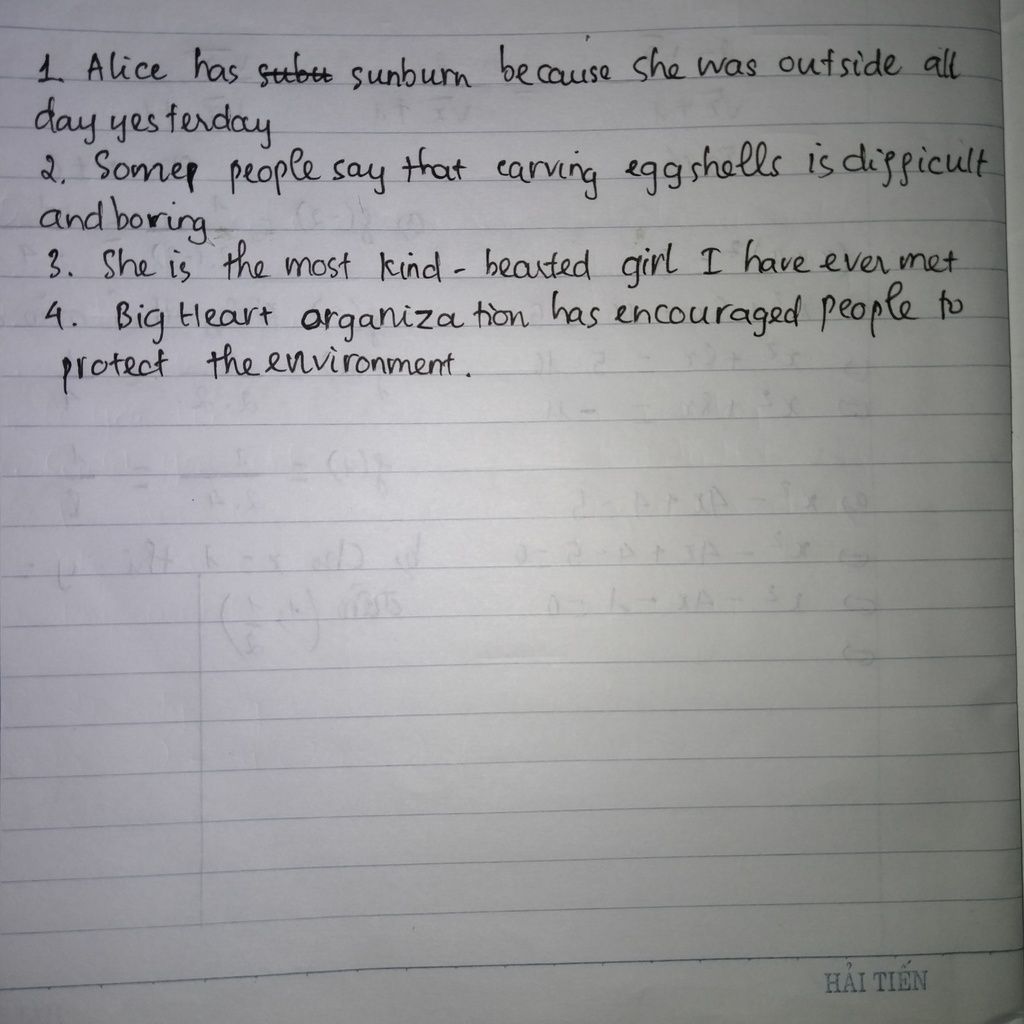 1. Alice has subu sunburn because she was outside all
day yesterday
2. Somep people say that carving eggshells is difficult
and boring
3. She is the most kind - hearted girl I have ever met
4. Big Heart organization has encouraged people to
protect the environment.
HẢI TIẾN